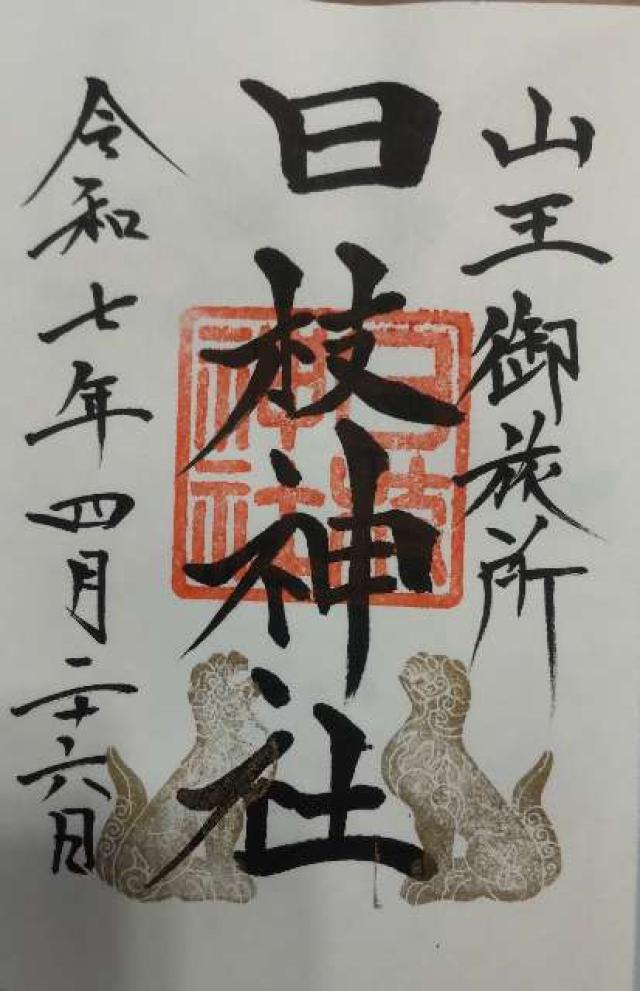 山王御旅所
日枝神社
日枝
神社
令和七年四月二十六日